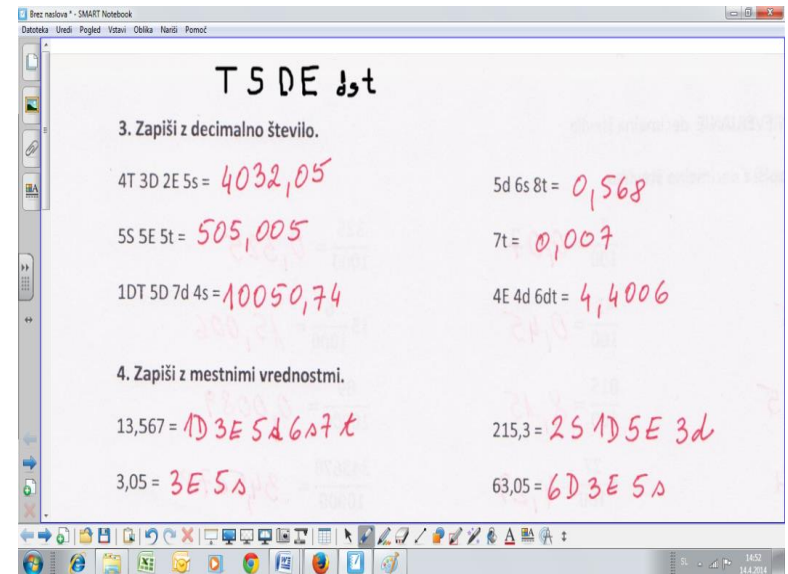 Brez naslova * - SMART Notebook
Datoteka Uredi Pogled Vstavi Oblika Nariši Pomoč
T S D E d s t
3. Zapiši z decimalno število.
4T 3D 2E 5s = 4032,05
5d 6s 8t = 0,568
5S 5E 5t = 505,005
7t = 0,007
1DT 5D 7d 4s = 10050,74
4E 4d 6dt = 4,4006
4. Zapiši z mestnimi vrednostmi.
13,567 = 1D 3E 5d 6s 7t
215,3 = 2S 1D 5E 3d
3,05 = 3E 5s
63,05 = 6D 3E 5s
SL
14:52
14.4.2014